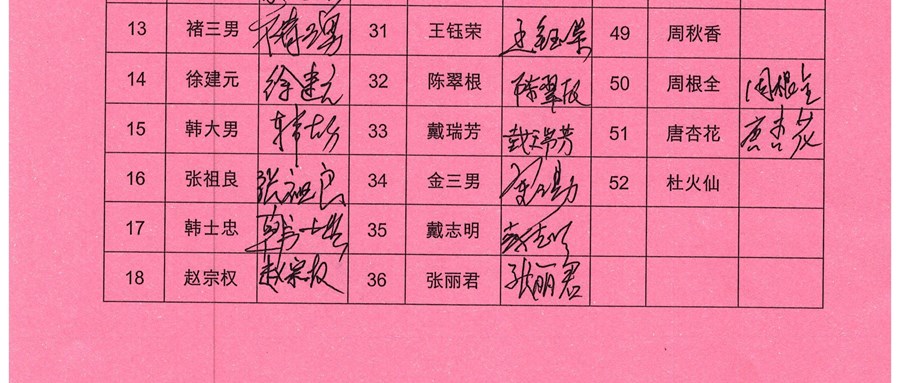 13 褚三男 褚三男 31 王钰荣 王钰荣 49 周秋香
14 徐建元 徐建元 32 陈翠根 陈翠根 50 周根全 周根全
15 韩大男 韩大男 33 戴瑞芳 戴瑞芳 51 唐杏花 唐杏花
16 张祖良 张祖良 34 金三男 金三男 52 杜火仙
17 韩士忠 韩士忠 35 戴志明 戴志明
18 赵宗权 赵宗权 36 张丽君 张丽君